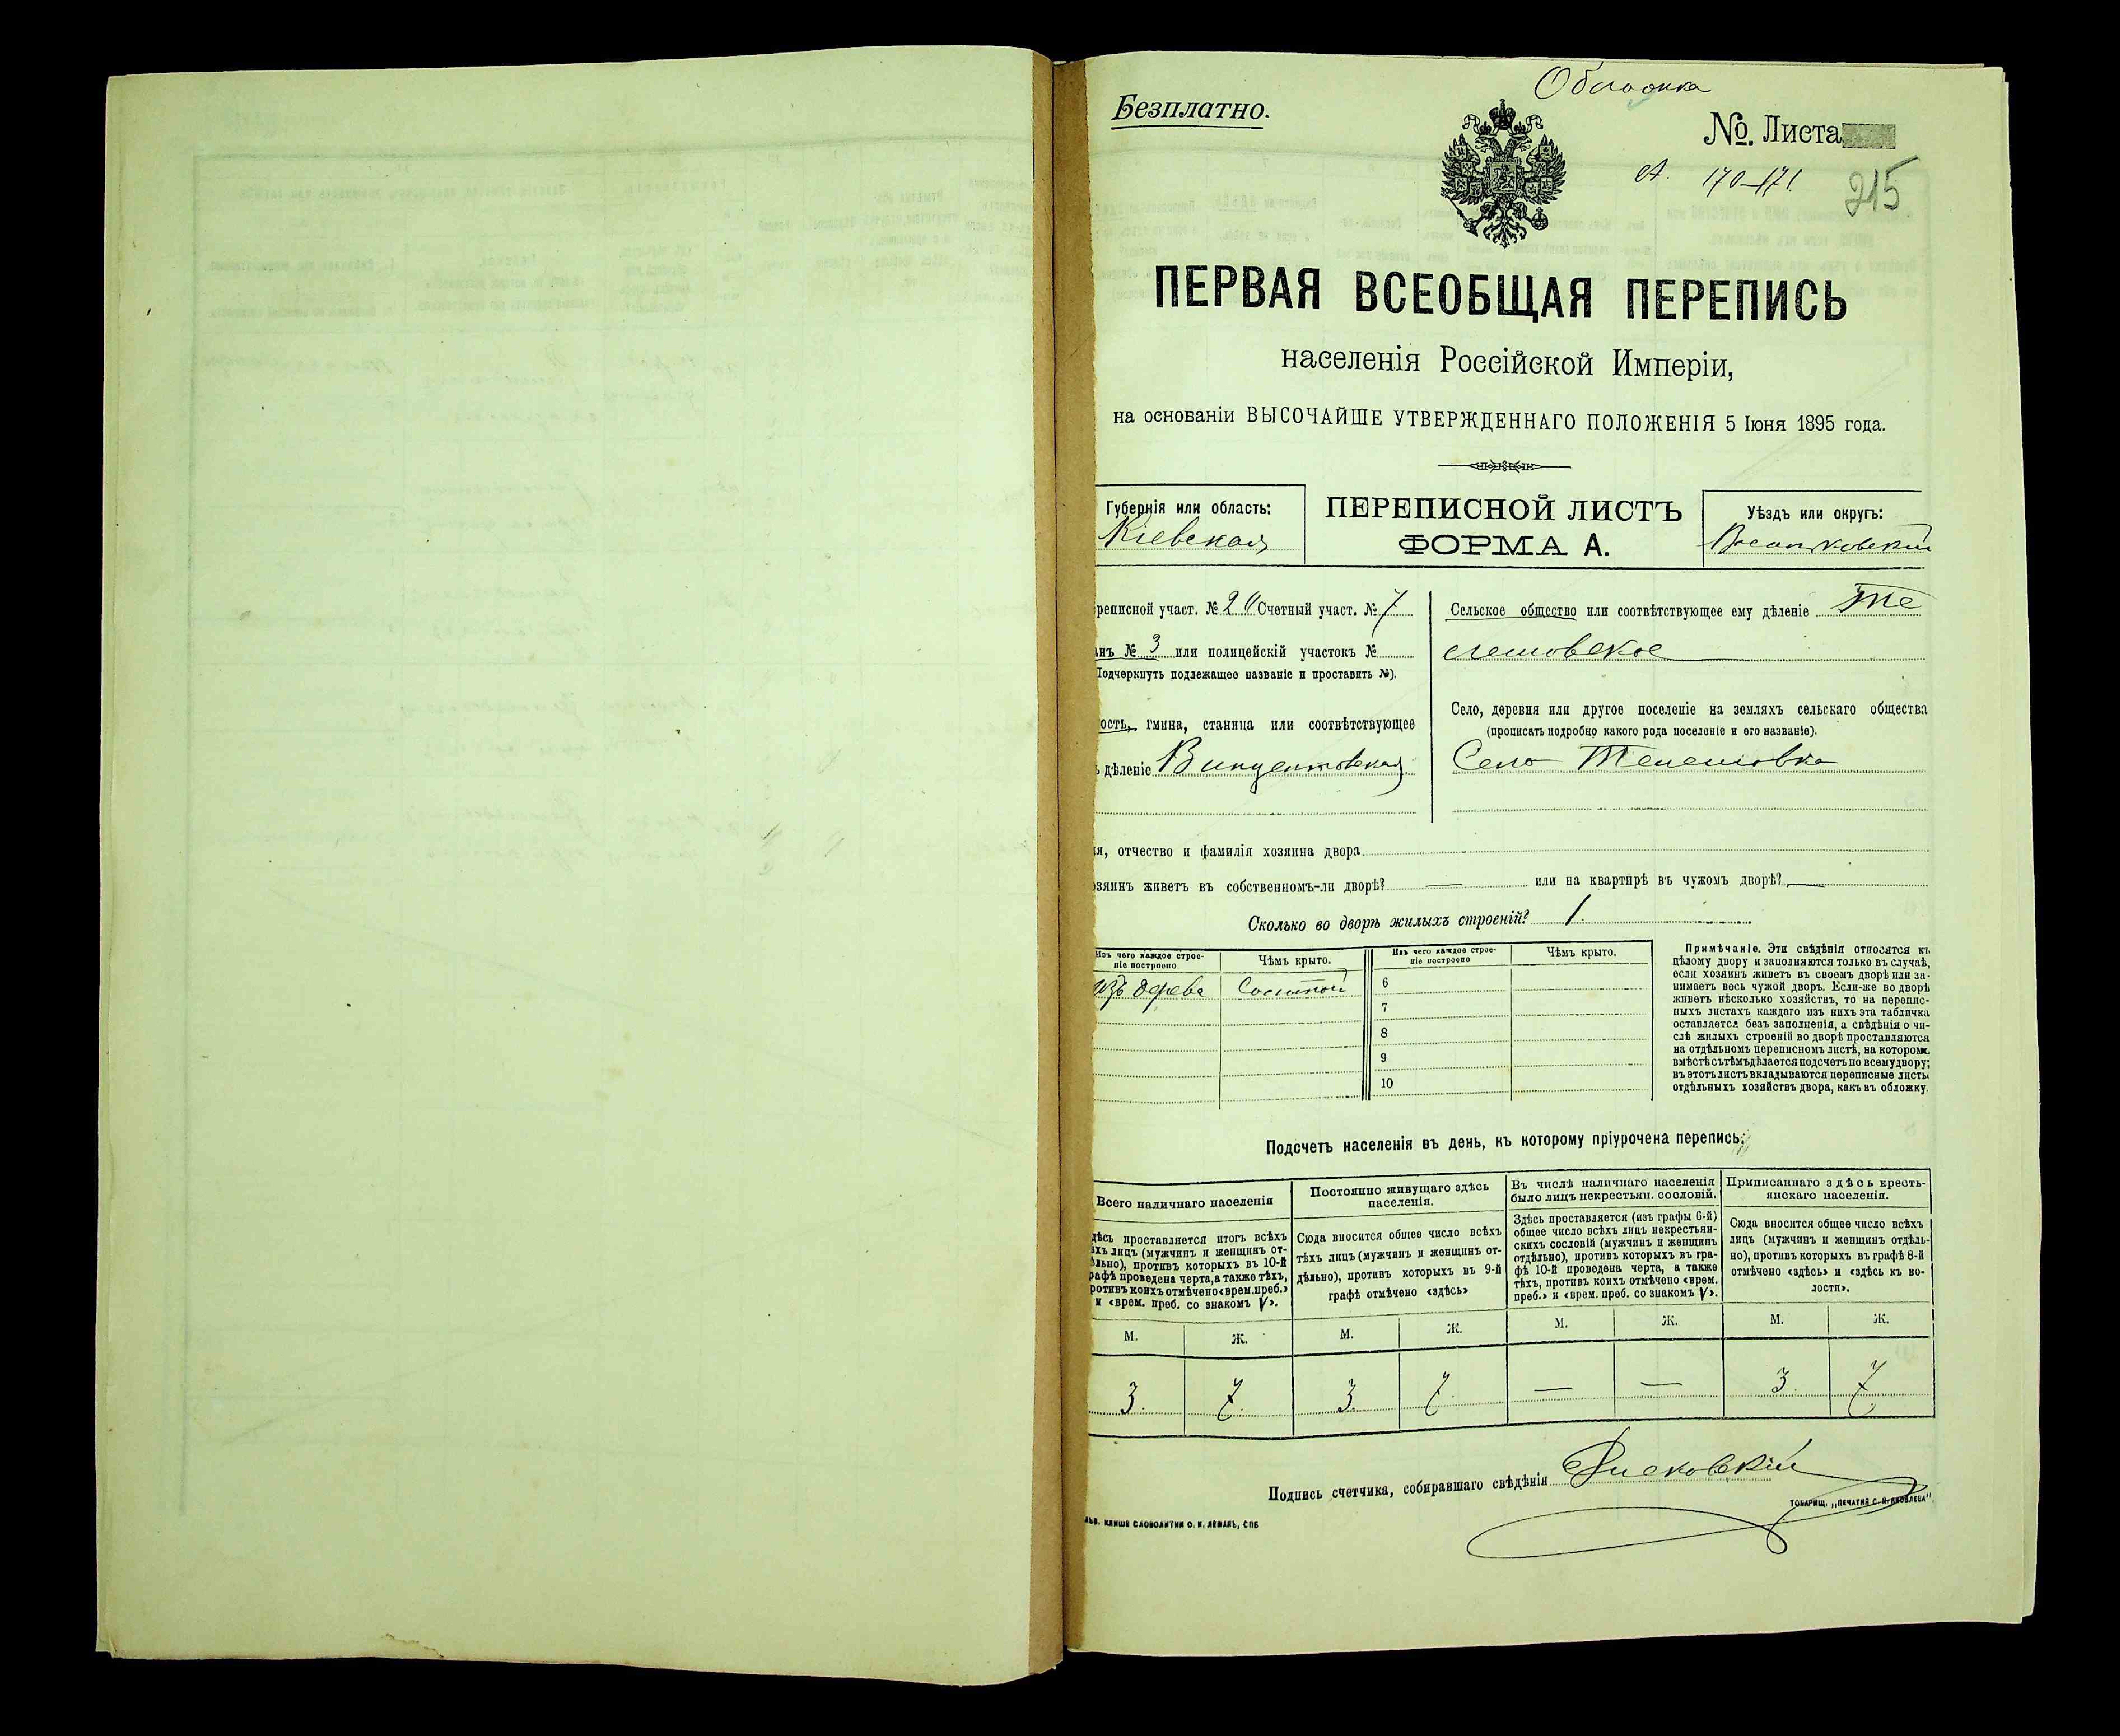 Обложка
Безплатно.
№. Листа
А. 170–171.
215
ПЕРВАЯ ВСЕОБЩАЯ ПЕРЕПИСЬ
населенія Россійской Имперіи,
на основаніи ВЫСОЧАЙШЕ УТВЕРЖДЕННАГО ПОЛОЖЕНІЯ 5 Іюня 1895 года.
Губернія или область:
Кіевская
ПЕРЕПИСНОЙ ЛИСТЪ
ФОРМА А.
Уѣздъ или округъ:
Васильковскій
реписной участ. № Счетный участ. № 7
анъ № 3 или полицейскій участокъ №
Подчеркнуть подлежащее названіе и проставить №).
ость, гмина, станица или соотвѣтствующее
ъ дѣленіе Винцентовская
Сельское общество или соотвѣтствующее ему дѣленіе Те
лешовское
Село, деревня или другое поселеніе на земляхъ сельскаго общества
(прописать подробно какого рода поселеніе и его названіе).
Село Телешовка
я, отчество и фамилія хозяина двора
озяинъ живетъ въ собственномъ-ли дворѣ? — или на квартирѣ въ чужомъ дворѣ? —
Сколько во дворѣ жилыхъ строеній? 1.
Изъ чего каждое строе-
ніе построено
Чѣмъ крыто.
изъ дерева
Соломой
Изъ чего каждое строе-
ніе построено
Чѣмъ крыто.
6
7
8
9
10
Примѣчаніе. Эти свѣдѣнія относятся къ
цѣлому двору и заполняются только въ случаѣ,
если хозяинъ живетъ въ своемъ дворѣ или за-
нимаетъ весь чужой дворъ. Если-же во дворѣ
живетъ нѣсколько хозяйствъ, то на перепис-
ныхъ листахъ каждаго изъ нихъ эта табличка
оставляется безъ заполненія, а свѣдѣнія о чи-
слѣ жилыхъ строеній во дворѣ проставляются
на отдѣльномъ переписномъ листѣ, на которомъ
вмѣстѣ съ тѣмъ дѣлается подсчетъ по всему двору;
въ этотъ листъ вкладываются переписные листы
отдѣльныхъ хозяйствъ двора, какъ въ обложку.
Подсчетъ населенія въ день, къ которому пріурочена перепись.
Всего наличнаго населенія
дѣсь проставляется итогъ всѣхъ
ѣхъ лицъ (мужчинъ и женщинъ от-
ѣльно), противъ которыхъ въ 10-й
рафѣ проведена черта, а также тѣхъ,
ротивъ коихъ отмѣчено «врем. преб.»
и «врем. преб. со знакомъ V».
М.
Ж.
3.
7.
Постоянно живущаго здѣсь
населенія.
Сюда вносится общее число всѣхъ
тѣхъ лицъ (мужчинъ и женщинъ от-
дѣльно), противъ которыхъ въ 9-й
графѣ отмѣчено «здѣсь»
М.
Ж.
3.
7.
Въ числѣ наличнаго населенія
было лицъ некрестьян. сословій.
Здѣсь проставляется (изъ графы 6-й)
общее число всѣхъ лицъ некрестьян-
скихъ сословій (мужчинъ и женщинъ
отдѣльно), противъ которыхъ въ гра-
фѣ 10-й проведена черта, а также
тѣхъ, противъ коихъ отмѣчено «врем.
преб.» и «врем. преб. со знакомъ V».
М.
Ж.
—
—
Приписаннаго здѣсь кресть-
янскаго населенія.
Сюда вносится общее число всѣхъ
лицъ (мужчинъ и женщинъ отдѣль-
но), противъ которыхъ въ графѣ 8-й
отмѣчено «здѣсь» и «здѣсь къ во-
лости».
М.
Ж.
3.
7.
Подпись счетчика, собиравшаго свѣдѣнія
ТОВАРИЩ. „ПЕЧАТНЯ С. П. ЯКОВЛЕВА".
КЛИШЕ СЛОВОЛИТНИ О. И. ЛЕМАНЪ, СПБ